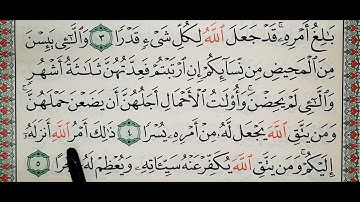 بَٰلِغُ أَمْرِهِۦ ۚ قَدْ جَعَلَ ٱللَّهُ لِكُلِّ شَىْءٍ قَدْرًا ٣ وَٱلَّٰٓـِٔى يَئِسْنَ
مِنَ ٱلْمَحِيضِ مِن نِّسَآئِكُمْ إِنِ ٱرْتَبْتُمْ فَعِدَّتُهُنَّ ثَلَٰثَةُ أَشْهُرٍ
وَٱلَّٰٓـِٔى لَمْ يَحِضْنَ ۚ وَأُو۟لَٰتُ ٱلْأَحْمَالِ أَجَلُهُنَّ أَن يَضَعْنَ حَمْلَهُنَّ ۚ
وَمَن يَتَّقِ ٱللَّهَ يَجْعَل لَّهُۥ مِنْ أَمْرِهِۦ يُسْرًا ٤ ذَٰلِكَ أَمْرُ ٱللَّهِ أَنزَلَهُۥٓ
إِلَيْكُمْ ۚ وَمَن يَتَّقِ ٱللَّهَ يُكَفِّرْ عَنْهُ سَيِّـَٔاتِهِۦ وَيُعْظِمْ لَهُۥٓ أَجْرًا ٥